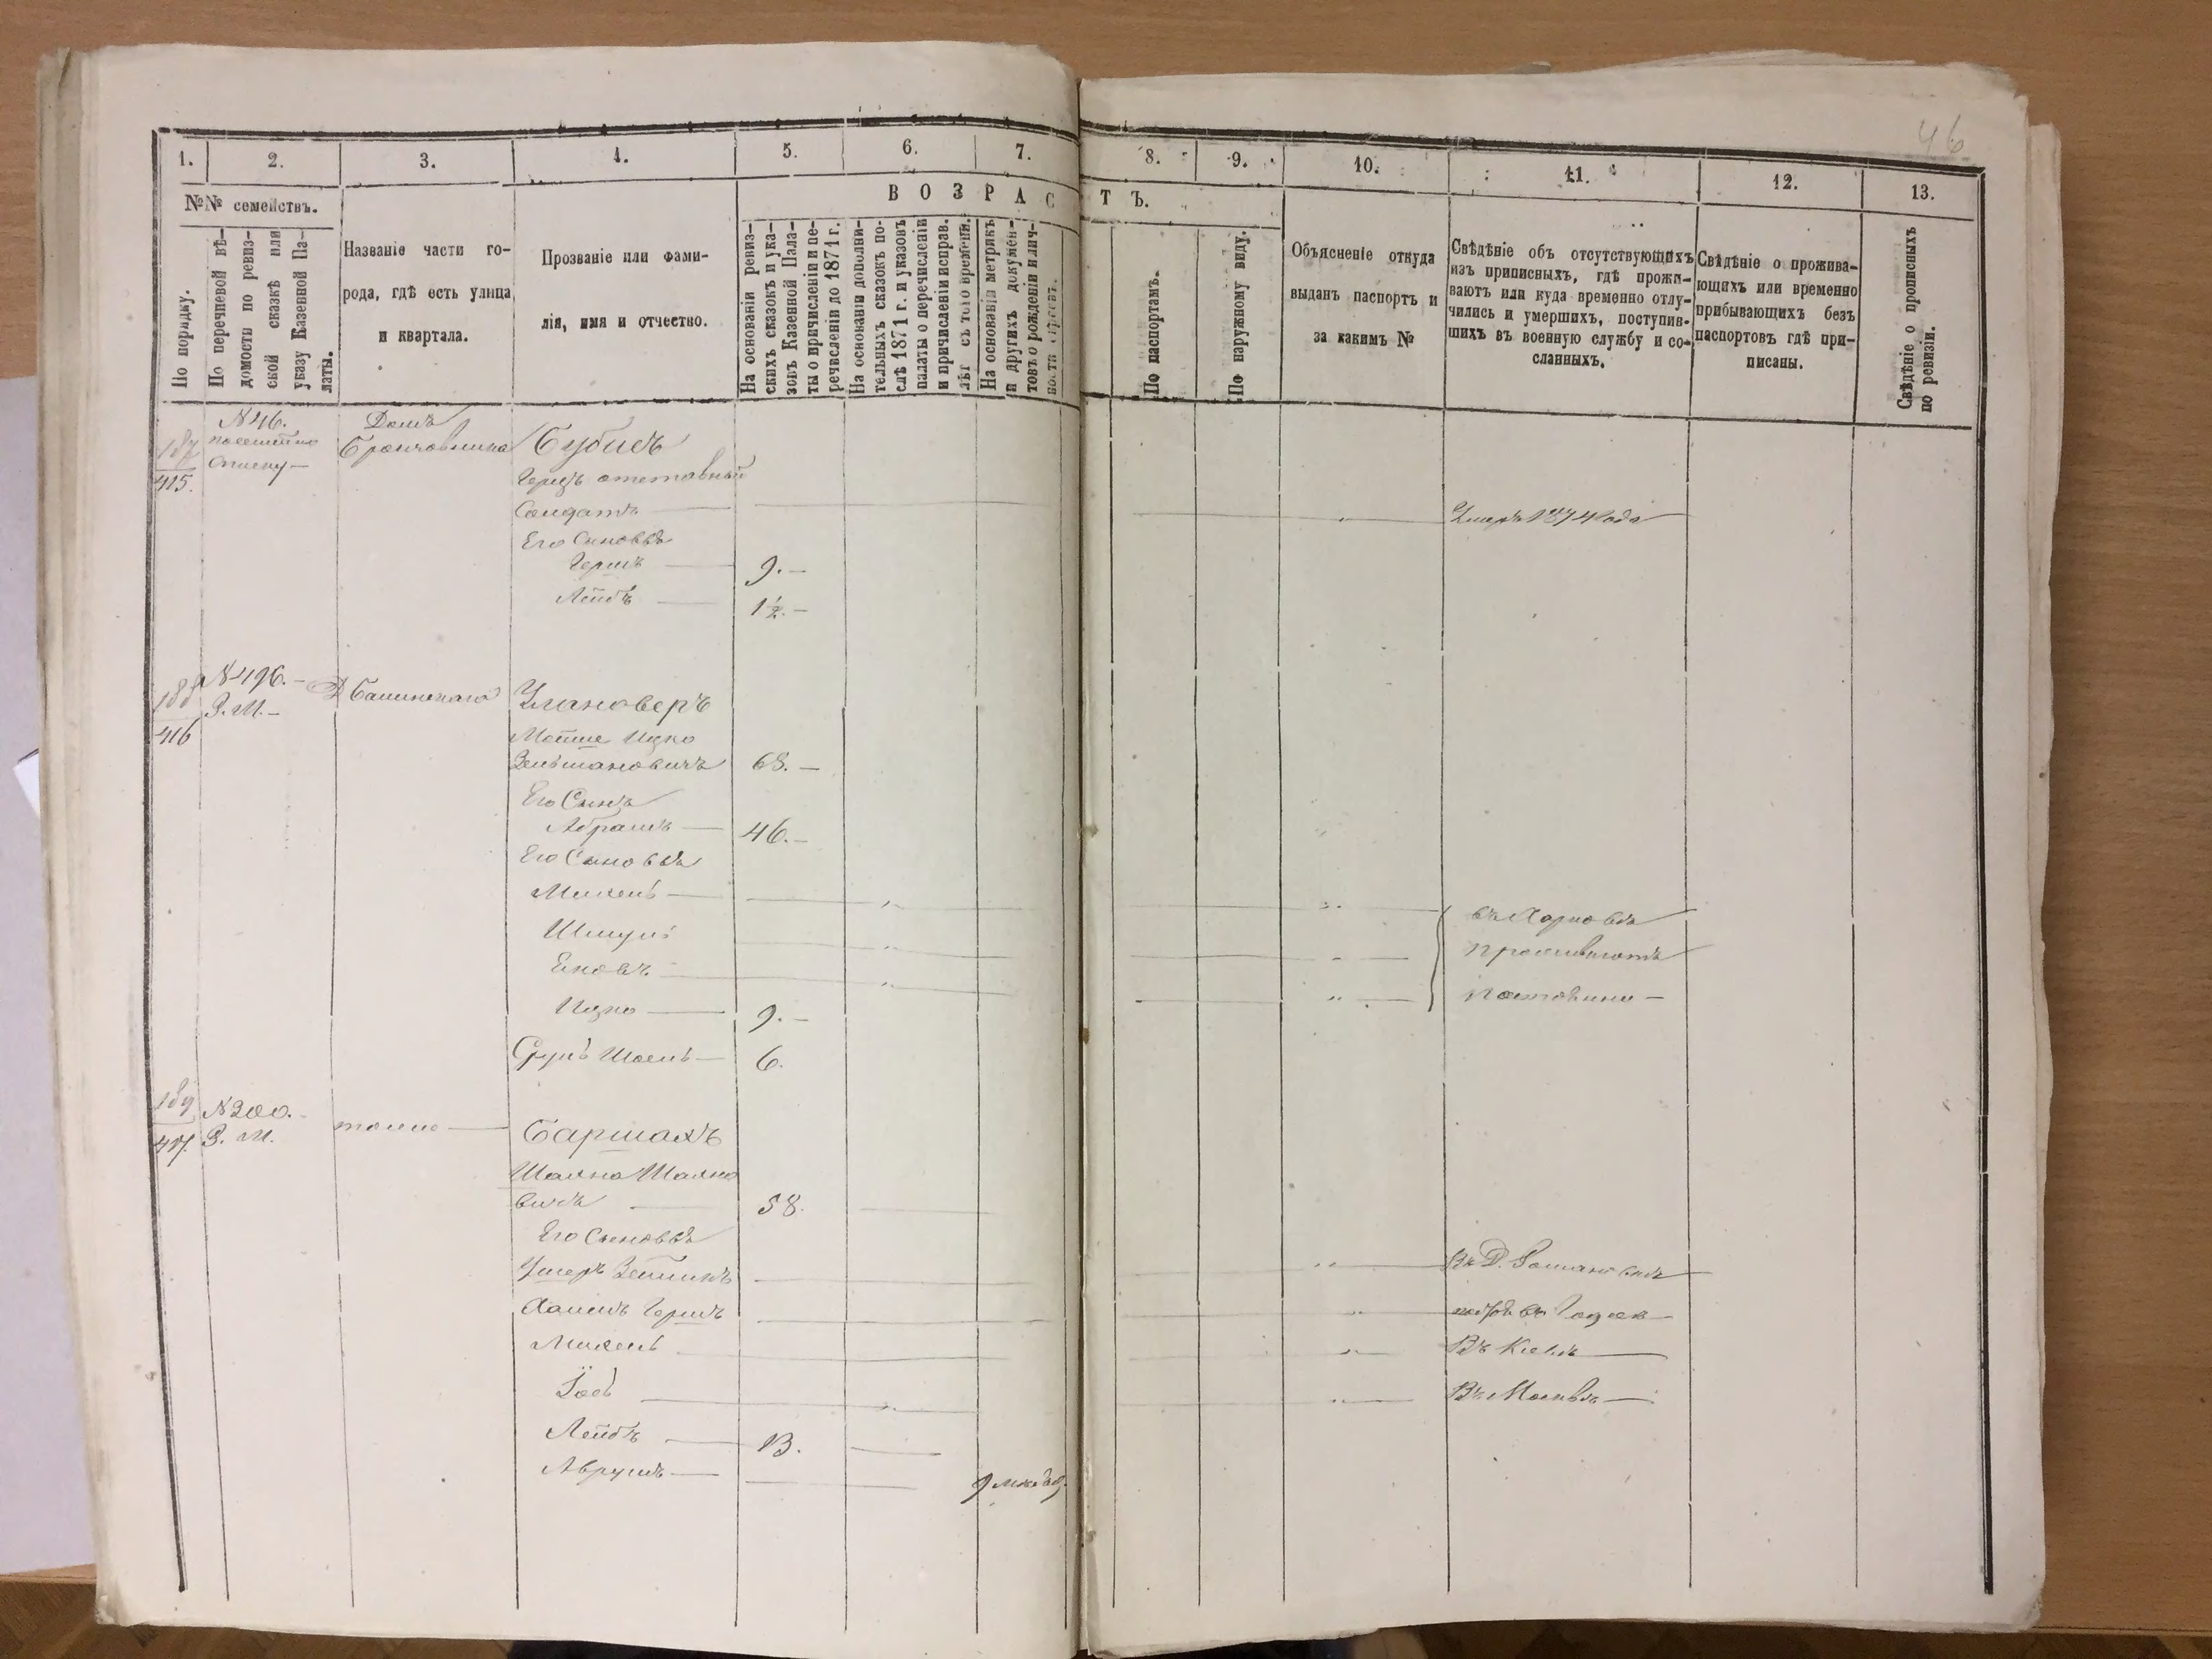 46
1. 2. 3. 4. 5. 6. 7. 8. 9. 10. 11. 12. 13.
№№ семействъ.
По порядку.
По перечневой вѣ-
домости по ревиз-
ской сказкѣ или
указу Казенной Па-
латы.
Названіе части го-
рода, гдѣ есть улица
и квартала.
Прозваніе или фами-
лія, имя и отчество.
ВОЗРАСТЪ.
На основаніи ревиз-
скихъ сказокъ и ука-
зовъ Казенной Пала-
ты о причисленіи и пе-
речисленіи до 1871 г.
На основаніи дополни-
тельныхъ сказокъ по-
слѣ 1871 г. и указовъ
палаты о перечисленіи
и причисленіи исправ.
лѣт съ того времени.
На основаніи метрикъ
и другихъ докумен-
товъ о рожденіи и лич-
ности
По паспортамъ.
По наружному виду.
Объясненіе откуда
выданъ паспортъ и
за какимъ №
Свѣдѣніе объ отсутствующихъ
изъ приписныхъ, гдѣ прожи-
ваютъ или куда временно отлу-
чились и умершихъ, поступив-
шихъ въ военную службу и со-
сланныхъ.
Свѣдѣніе о прожива-
ющихъ или временно
прибывающихъ безъ
паспортовъ гдѣ при-
писаны.
Свѣдѣніе о прописныхъ
по ревизіи.
187
415.
№ 46.
списку —
Домъ
Герцъ отставный
Солдатъ — Умеръ 1874 года
Его Сыновья
Гершъ — 9. —
Лейбъ — 1½. —
188
416
№ 496. —
Р. М. —
Улановеръ
Мойше Ицко
Зельмановичъ 68. —
Его Сынъ
Абрамъ — 46. —
Его Сыновья
Михель — въ Харьковѣ
Шмуль проживаютъ
Ековъ — постоянно —
Ицко — 9. —
Сруль Шоель — 6.
189
417.
№ 200. —
Р. М.
тоже —
Баршахъ
Шахно Шахно
вичъ — 58.
Его Сыновья
Хаимъ Гершъ
Михель — Въ Кіевѣ —
Іось — Въ Москвѣ —
Лейбъ — 13. —
Аврумъ —